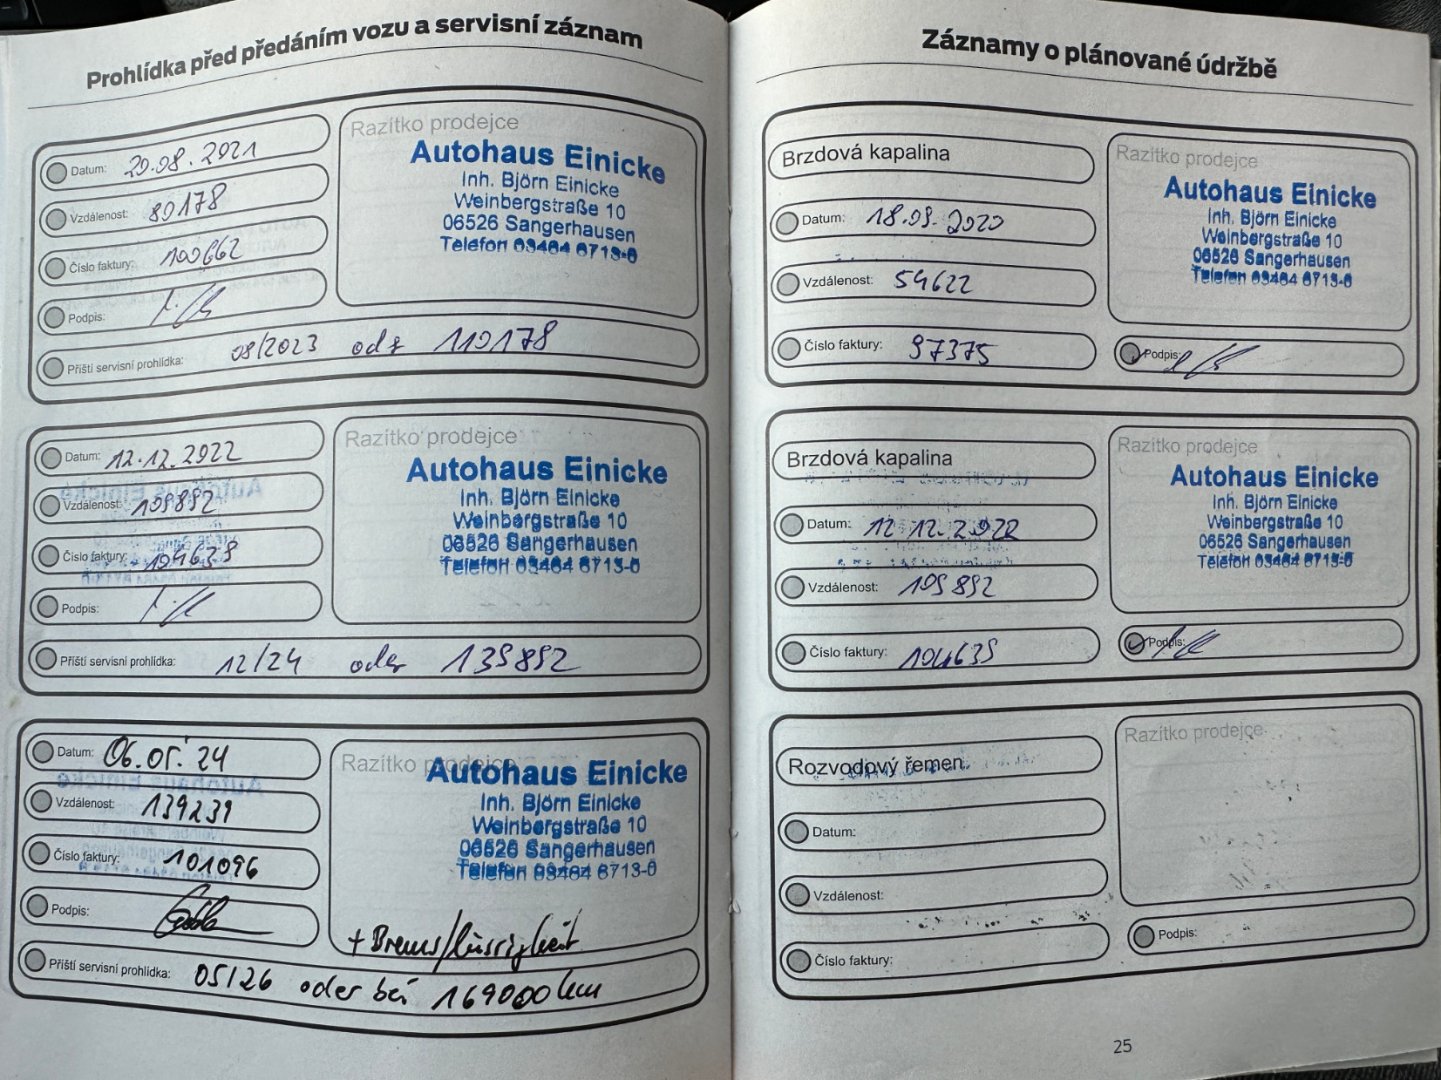 Prohlídka před předáním vozu a servisní záznam
Datum: 20.08.2021
Vzdálenost: 80178
Číslo faktury: 100662
Podpis:
Příští servisní prohlídka: 08/2023 odr 110178
Razítko prodejce
Autohaus Einicke
Inh. Björn Einicke
Weinbergstraße 10
06526 Sangerhausen
Telefon 03464 6713-0
Datum: 12.12.2022
Vzdálenost: 109892
Číslo faktury: 104639
Podpis:
Příští servisní prohlídka: 12/24 oder 139892
Razítko prodejce
Autohaus Einicke
Inh. Björn Einicke
Weinbergstraße 10
06526 Sangerhausen
Telefon 03464 6713-0
Datum: 06.05.'24
Vzdálenost: 139239
Číslo faktury: 101096
Podpis:
Příští servisní prohlídka: 05/26 oder bei 169000 km
Razítko prodejce
Autohaus Einicke
Inh. Björn Einicke
Weinbergstraße 10
06526 Sangerhausen
Telefon 03464 6713-0
+ Bremsflüssigkeit
Záznamy o plánované údržbě
Brzdová kapalina
Datum: 18.09.2020
Vzdálenost: 54622
Číslo faktury: 97375
Razítko prodejce
Autohaus Einicke
Inh. Björn Einicke
Weinbergstraße 10
06526 Sangerhausen
Telefon 03464 6713-0
Podpis:
Brzdová kapalina
Datum: 12.12.2022
Vzdálenost: 109892
Číslo faktury: 104639
Razítko prodejce
Autohaus Einicke
Inh. Björn Einicke
Weinbergstraße 10
06526 Sangerhausen
Telefon 03464 6713-0
Podpis:
Rozvodový řemen
Datum:
Vzdálenost:
Číslo faktury:
Razítko prodejce
Podpis:
25